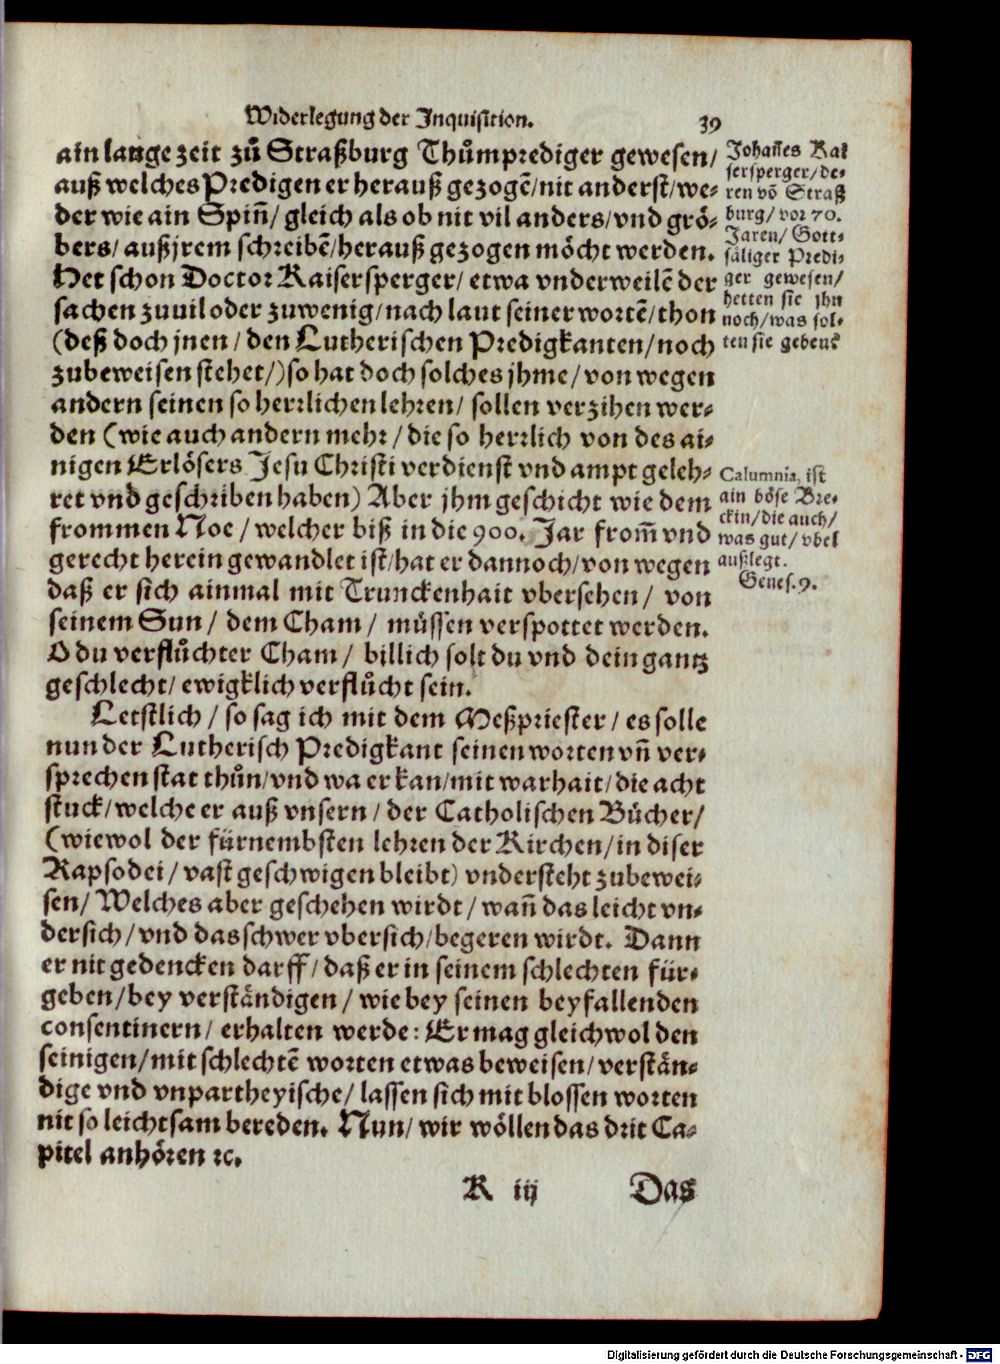 Widerlegung der Inquisition. 39
ain lange zeit zů Straßburg Thůmprediger gewesen/
auß welches Predigen er herauß gezogẽ/nit anderst/we-
der wie ain Spiñ/ gleich als ob nit vil anders/vnd grö-
bers/ außjrem schreibẽ/herauß gezogen möcht werden.
Het schon Doctor Kaisersperger/ etwa vnderweilẽ der
sachen zuuil oder zuwenig/nach laut seiner wortẽ/thon
(deß doch jnen/ den Lutherischen Predigkanten/noch
zubeweisen stehet/)so hat doch solches jhme/von wegen
andern seinen so herrlichen lehren/ sollen verzihen wer-
den (wie auch andern mehr/die so herrlich von des ai-
nigen Erlösers Jesu Christi verdienst vnd ampt geleh-
ret vnd geschriben haben) Aber jhm geschicht wie dem
frommen Noe/welcher biß in die 900. Jar from̃ vnd
gerecht herein gewandlet ist/hat er dannoch/von wegen
daß er sich ainmal mit Trunckenhait vbersehen/ von
seinem Sun/ dem Cham/ müssen verspottet werden.
O du verflůchter Cham/ billich solt du vnd dein gantz
geschlecht/ ewigklich verflůcht sein.
Letstlich/so sag ich mit dem Meßpriester/es solle
nun der Lutherisch Predigkant seinen worten vñ ver-
sprechen stat thůn/vnd wa er kan/mit warhait/die acht
stuck/welche er auß vnsern/der Catholischen Bücher/
(wiewol der fürnembsten lehren der Kirchen/in diser
Rapsodei/vast geschwigen bleibt) vndersteht zubewei-
sen/ Welches aber geschehen wirdt/wañ das leicht vn-
dersich/vnd das schwer vbersich/begeren wirdt. Dann
er nit gedencken darff/daß er in seinem schlechten für-
geben/bey verständigen/wie bey seinen beyfallenden
consentinern/ erhalten werde: Er mag gleichwol den
seinigen/mit schlechtẽ worten etwas beweisen/verstän-
dige vnd vnpartheyische/lassen sich mit blossen worten
nit so leichtsam bereden. Nun/ wir wöllen das drit Ca-
pitel anhören ꝛc.
K iij Das
Johañes Kai
sersperger/de-
ren võ Straß
burg/vor 70.
Jaren/Gott-
säliger Predi-
ger gewesen/
hetten sie jhn
noch/was sol-
ten sie gebenck
Calumnia, ist
ain böse Bre-
ckin/die auch/
was gut/vbel
außlegt.
Genes.9.
Digitalisierung gefördert durch die Deutsche Forschungsgemeinschaft - DFG